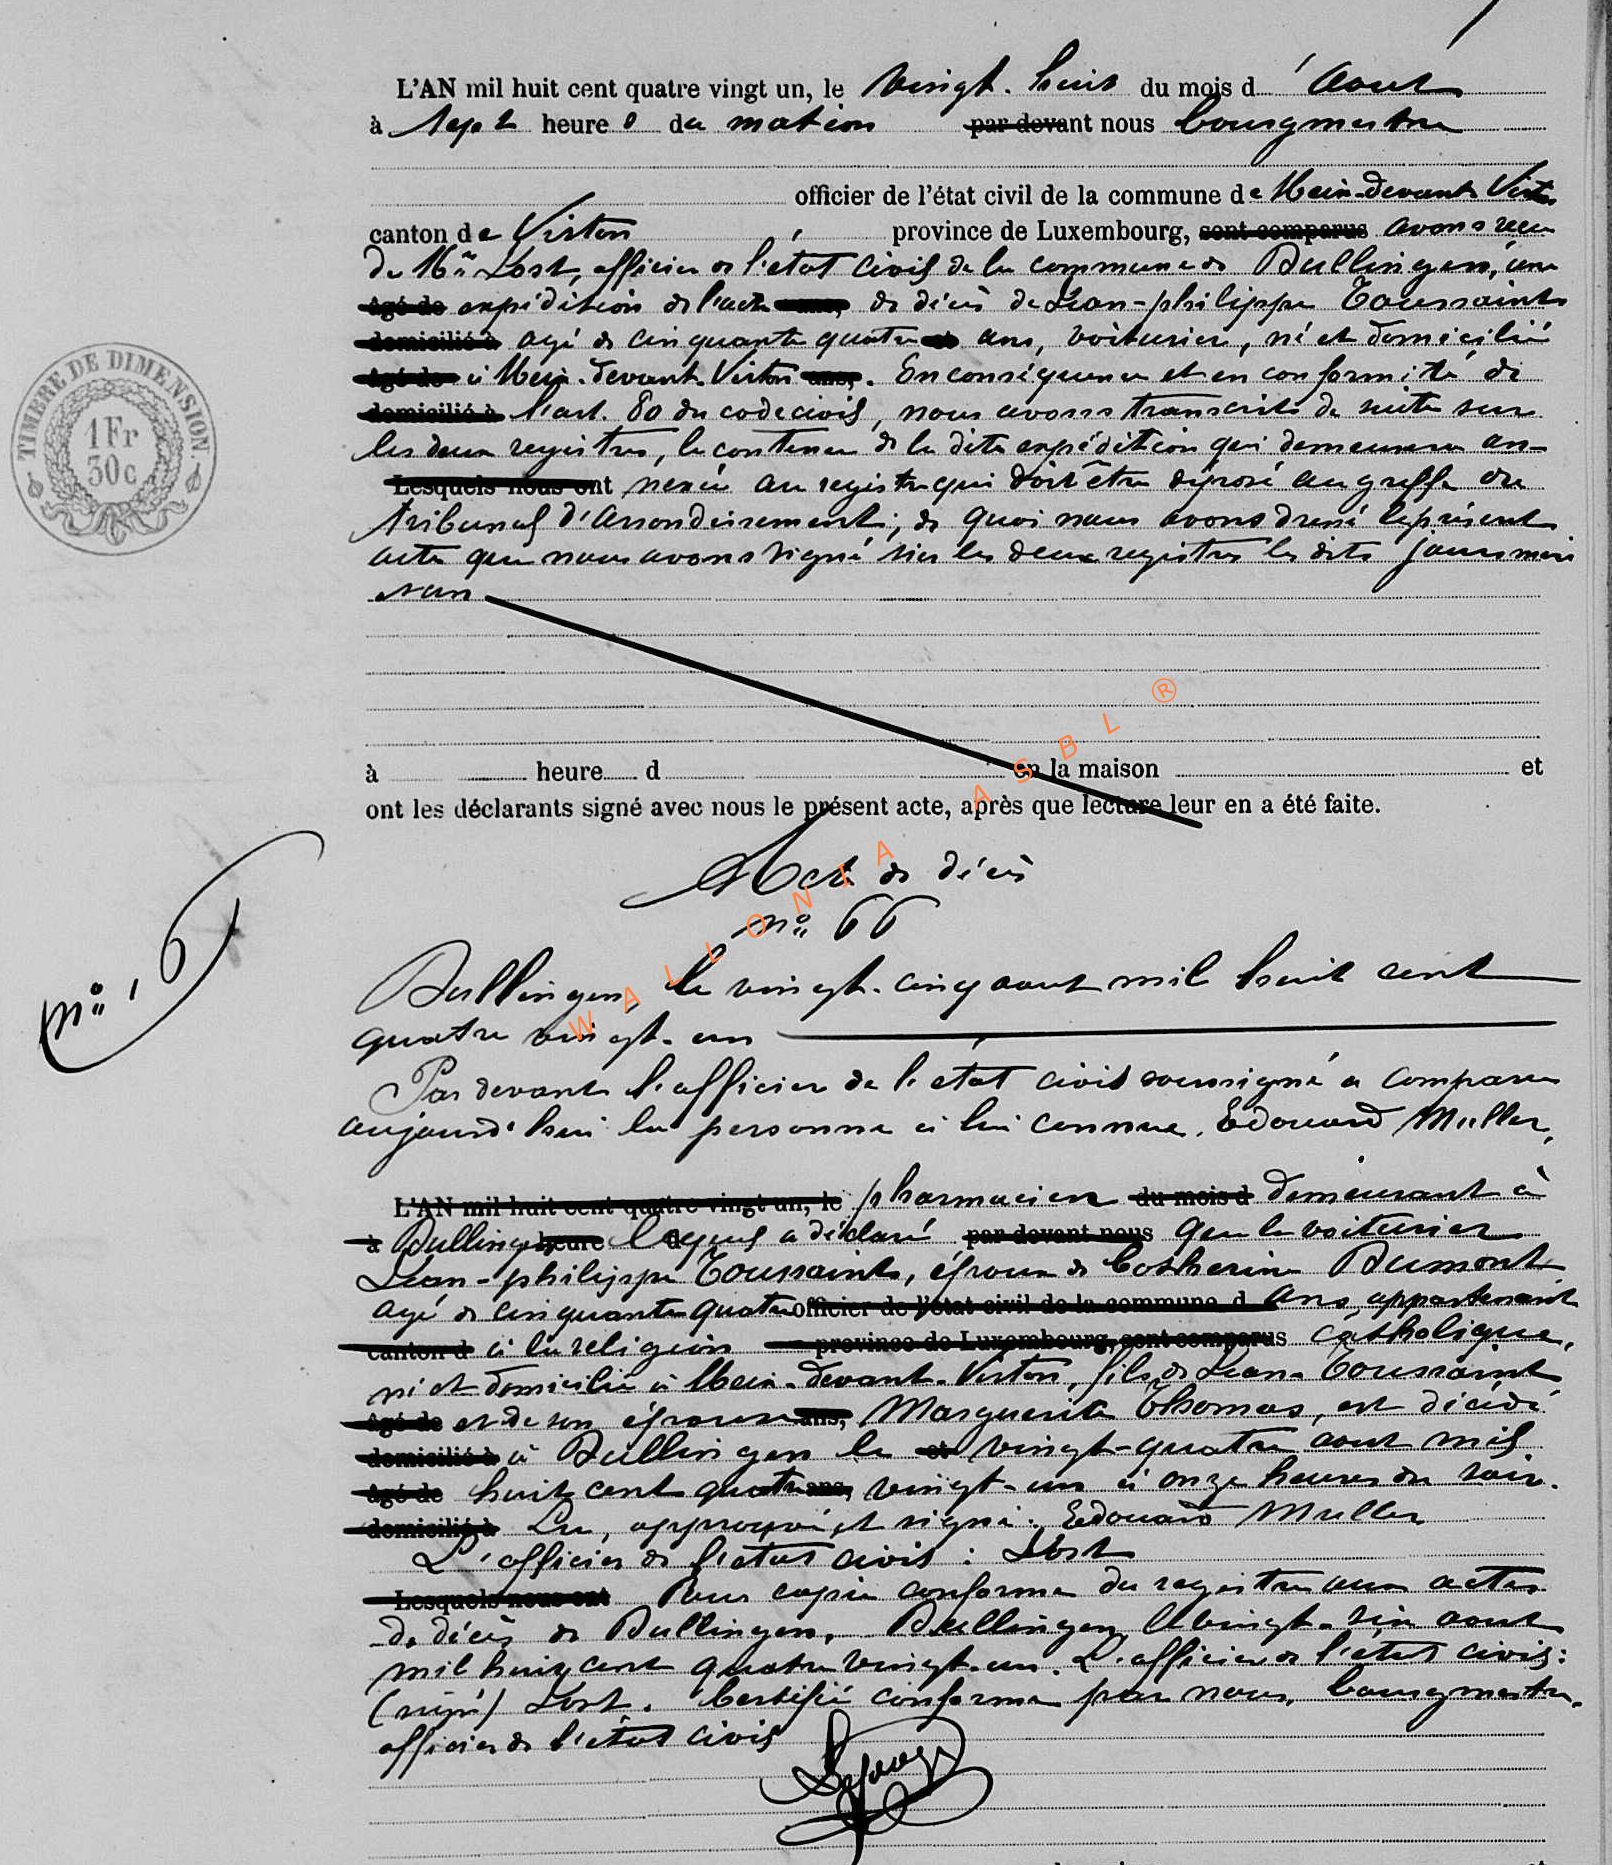 L'AN mil huit cent quatre vingt un, le vingt-huit du mois d'aout
à sept heures du matin par devant nous bourgmestre
officier de l'état civil de la commune de Meix-devant-Virton
canton de Virton province de Luxembourg, sont comparus avons reçu
de Mr Lost, officier de l'état civil de la commune de Bullingen, une
âgé de expédition de l'acte ans, de décès de Jean-philippe Toussaint
domicilié à agé de cinquante quatre et ans, voiturier, né et domicilié
âgé de à Meix-devant-Virton ans,. En conséquence et en conformité de
domicilié à l'art. 80 du code civil, nous avons transcrits de suite sur
les deux registres, le contenu de la dite expédition qui demeurera an-
Lesquels nous ont nexée au registre qui doit être déposé au greffe du
tribunal d'arrondissement; de quoi nous avons dressé le présent
acte que nous avons signé sur les deux registres les dits jours mois
et an
à heure d en la maison et
ont les déclarants signé avec nous le présent acte, après que lecture leur en a été faite.
TIMBRE DE DIMENSION
1 Fr
30c
Acte de décès
no 66
no 16
Bullingen, le vingt-cinq aout mil huit cent
quatre vingt-un
Par devant l'officier de l'état civil soussigné a comparu
aujourd'hui la personne à lui connue, Edouard Muller,
L'AN mil huit cent quatre vingt un, le pharmacien du mois d demeurant à
à Bulling heure lequel a déclaré par devant nous que le voiturier
Jean-philippe Toussaint, époux de Catherine Dumont
agé de cinquante quatre officier de l'état civil de la commune d ans, appartenant
canton d à la religion province de Luxembourg, sont comparus catholique,
né et domicilié à Meix-devant-Virton, fils de Jean Toussaint
âgé de et de son épouse ans, Marguerite Thomas, est décédé
domicilié à à Bullingen le et vingt-quatre aout mil
âgé de huit cent quatre ans, vingt-un à onze heures du soir.
domicilié à Lu, approuvé et signé: Edouard Muller
L'officier de l'état civil: Lost
Lesquels nous ont Pour copie conforme du registre aux actes
de décès de Bullingen. Bullingen, le vingt-six aout
mil huit cent quatre vingt-un. L'officier de l'état civil:
(signé) Lost. Certifié conforme par nous, bourgmestre,
officier de l'état civil
WALLONIA ASBL ®